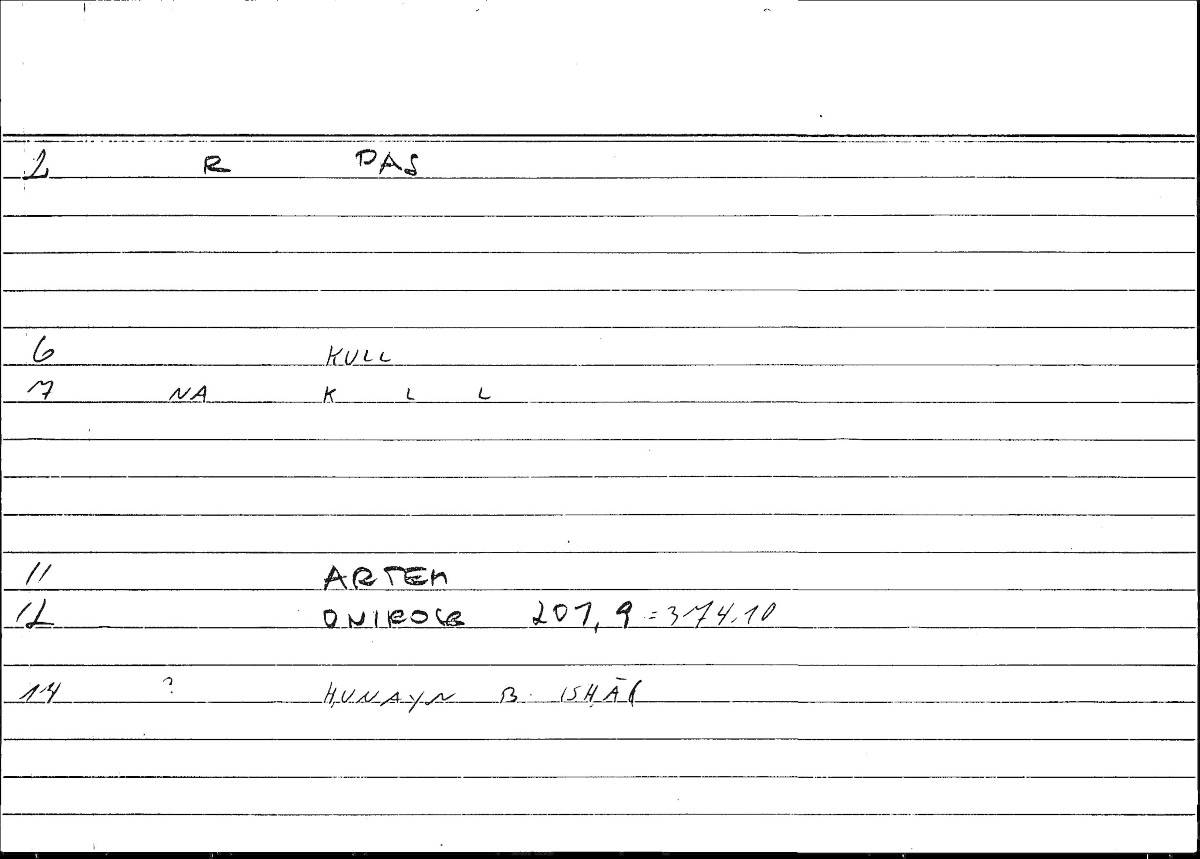 2 R PAS
6 KULL
7 NA K L L
11 ARTEM
12 ONIROCR 207, 9 = 374.10
14 ? ḤUNAYN B. ISḤĀQ